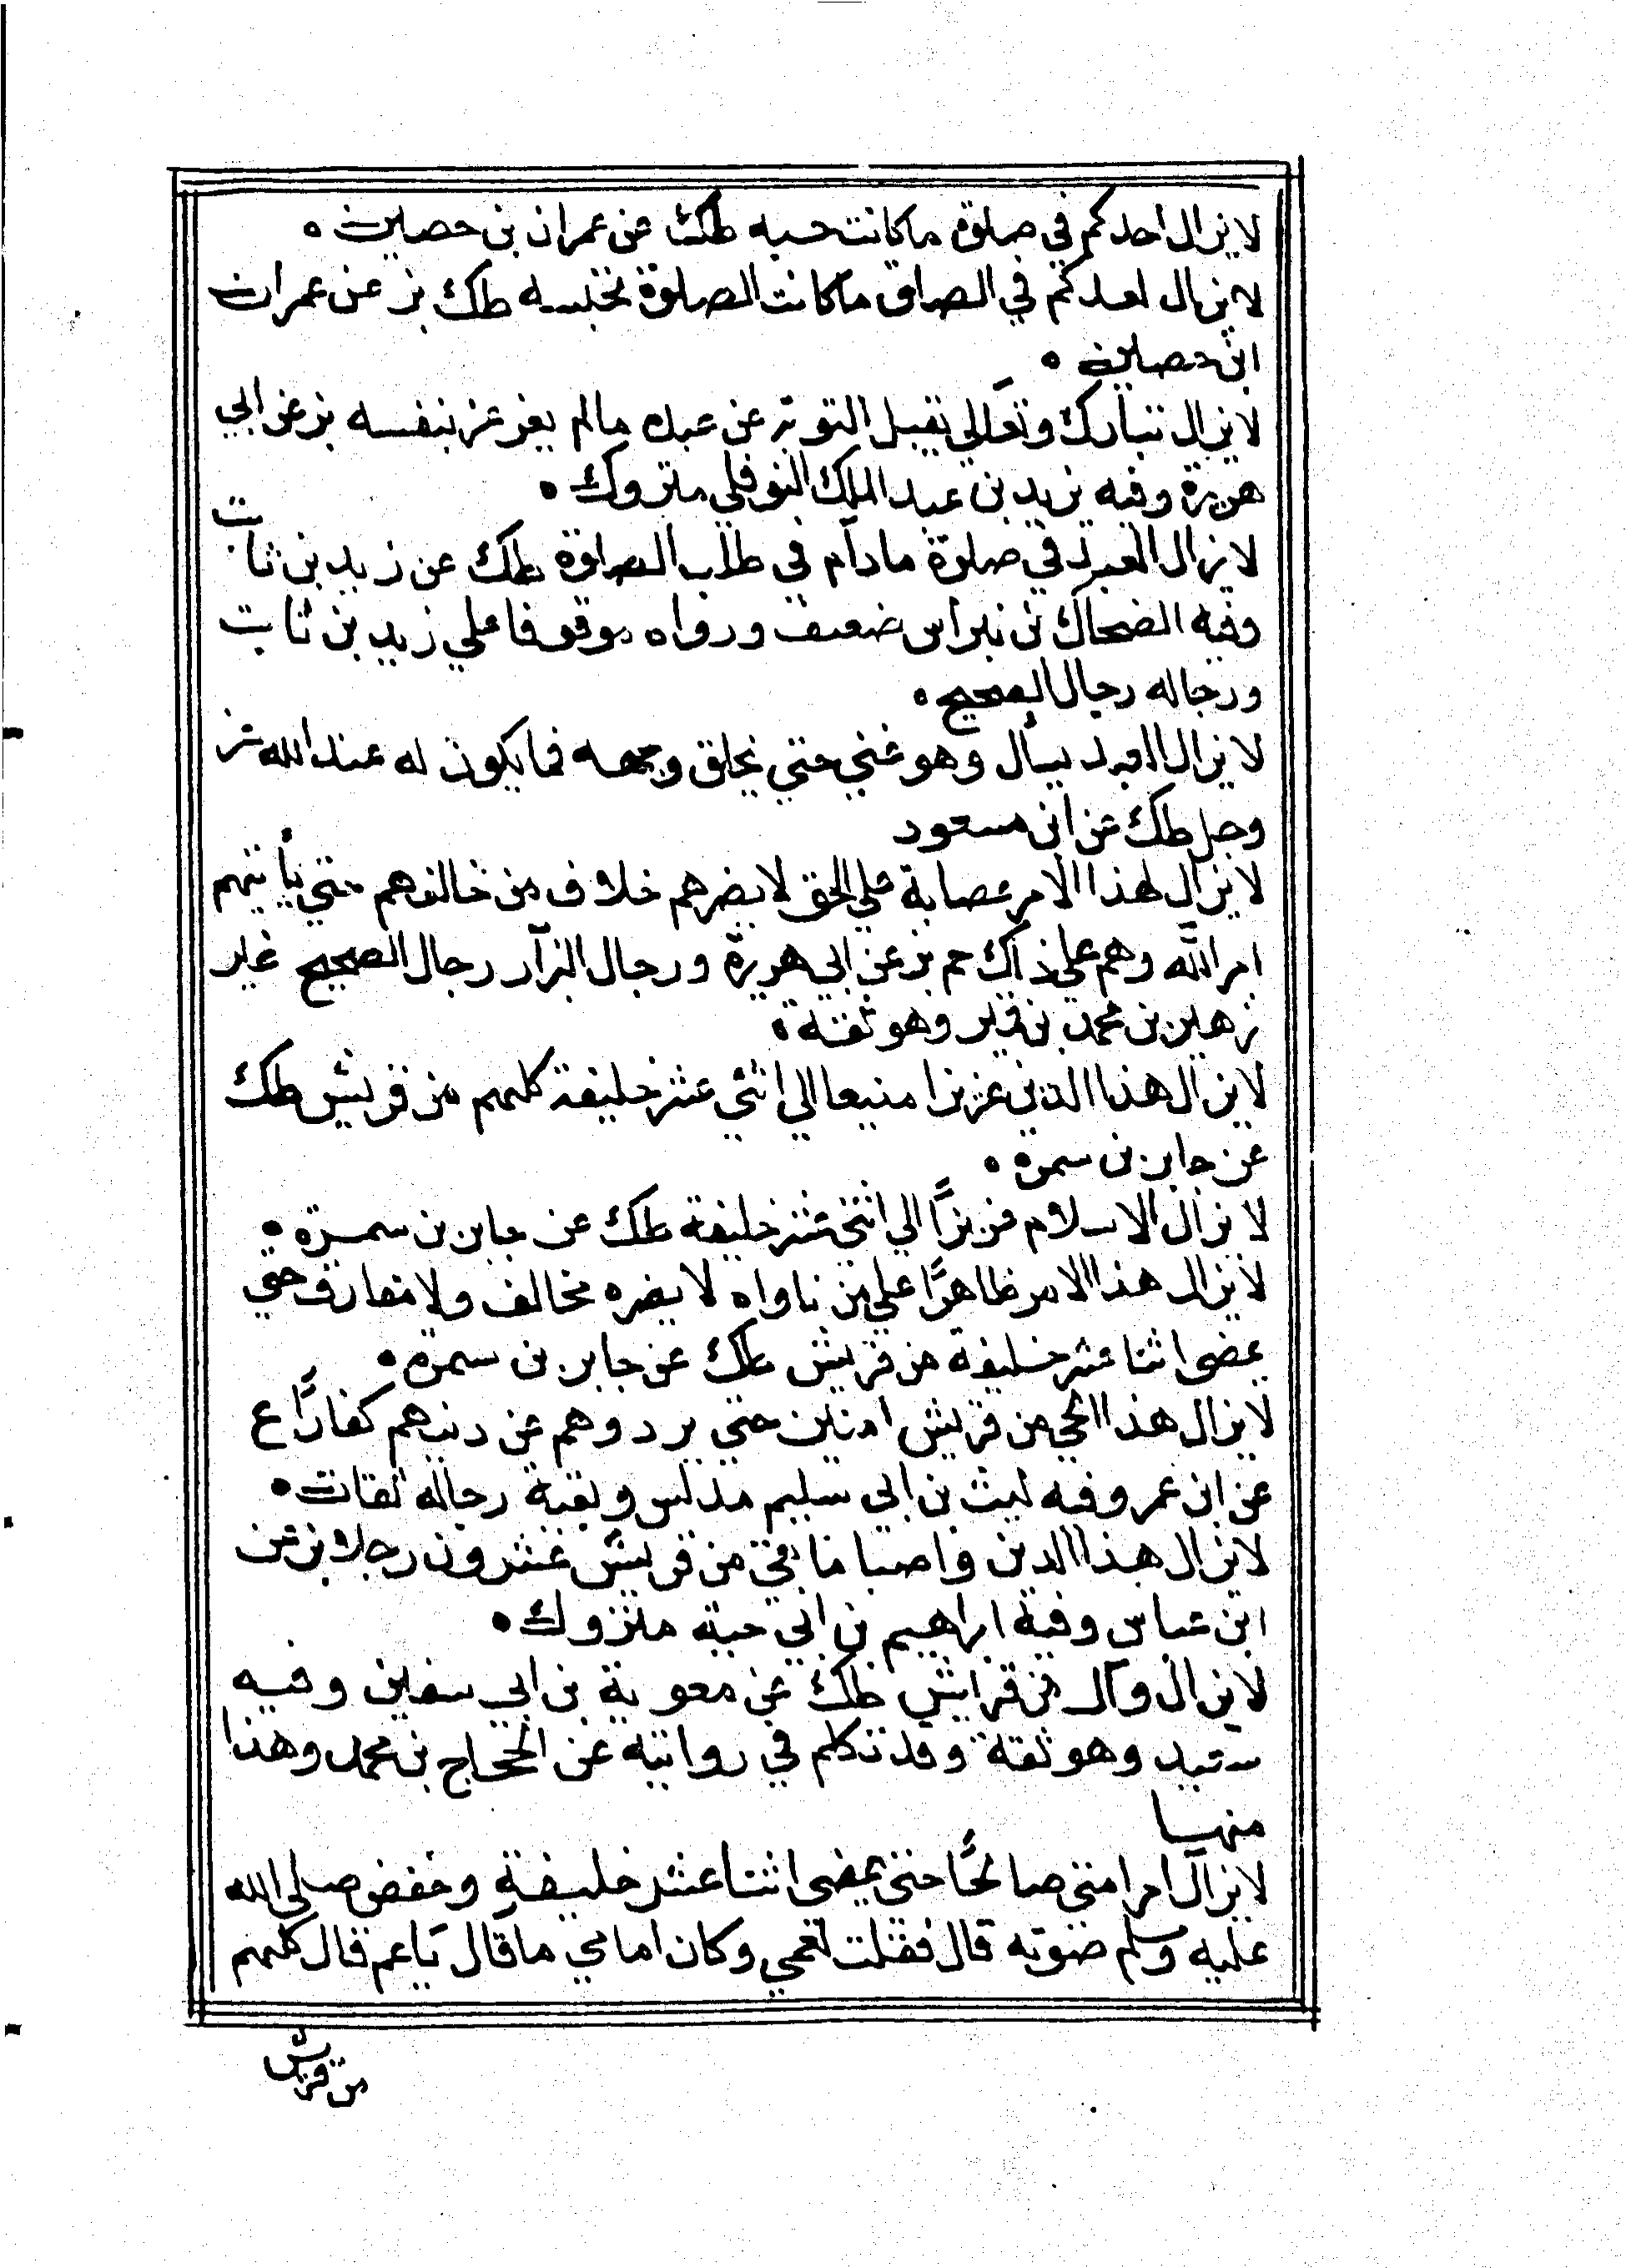 لا يزال احدكم في صلوة ما كانت حسبه طك عن عمران بن حصين ه
لا يزال احدكم في الصلوة ما كانت الصلوة تحبسه طك بز عن عمران
ابن حصين ه
لا يزال تبارك وتعالي يقبل التوبة عن عبده مالم يغرغر بنفسه بز عن ابي
هريرة وفيه يزيد بن عبد الملك النوفلي متروك ه
لا يزال العبد في صلوة مادام في طلب الصلوة طك عن زيد بن ثابت
وفيه الضحاك بن نبراس ضعيف ورواه موقوفا علي زيد بن ثابت
ورجاله رجال الصحيح ه
لا يزال العبد يسأل وهو غني حتي يخلق وجهه فما يكون له عند الله عز
وجل طك عن ابن مسعود
لا يزال لهذا الامر عصابة علي الحق لا يضرهم خلاف من خالفهم حتي يأتيهم
امر الله وهم علي ذلك حم بز عن ابي هريرة ورجال البزار رجال الصحيح غير
زهير بن محمد بن قمير وهو ثقة ه
لا يزال هذا الدين عزيزا منيعا الي اثني عشر خليفة كلهم من قريش طك
عن جابر بن سمرة ه
لا يزال الاسلام عزيزًا الي اثني عشر خليفة طك عن جابر بن سمرة ه
لا يزال هذا الامر ظاهرًا علي من ناواه لا يضره مخالف ولا مفارق حتي
يمضي اثنا عشر خليفة من قريش طك عن جابر بن سمرة ه
لا يزال هذا الحي من قريش امنين حتي يردوهم عن دينهم كفارًا ع
عن ابن عمر وفيه ليث بن ابي سليم مدلس وبقية رجاله ثقات ه
لا يزال هذا الدين واصبا ما بقي من قريش عشرون رجلا بز عن
ابن عباس وفيه ابراهيم بن ابي حية متروك ه
لا يزال وال من قريش طك عن معوية بن ابي سفين وفيه
سنيد وهو ثقة وقد تكلم في روايته عن الحجاج بن محمد وهذا
منها
لا يزال امر امتي صالحًا حتي يمضي اثنا عشر خليفة وخفض صلي الله
عليه وسلم صوته قال فقلت لعمي وكان امامي ما قال يا عم قال كلهم
من قريش